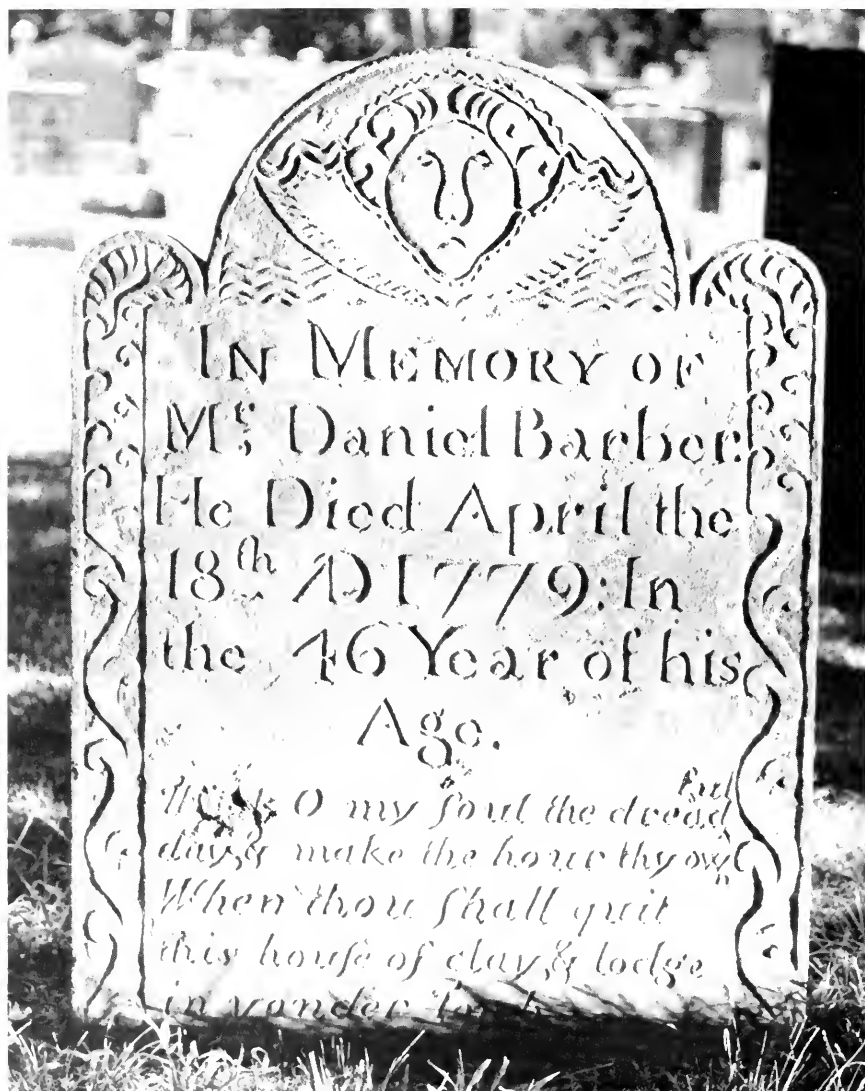 IN MEMORY OF
Mr. Daniel Barber.
He Died April the
18th AD 1779: In
the 46 Year of his
Age.
Think O my ſoul the dreadful
day, & make the hour thy own
When thou ſhall quit
this houſe of clay, & lodge
in yonder